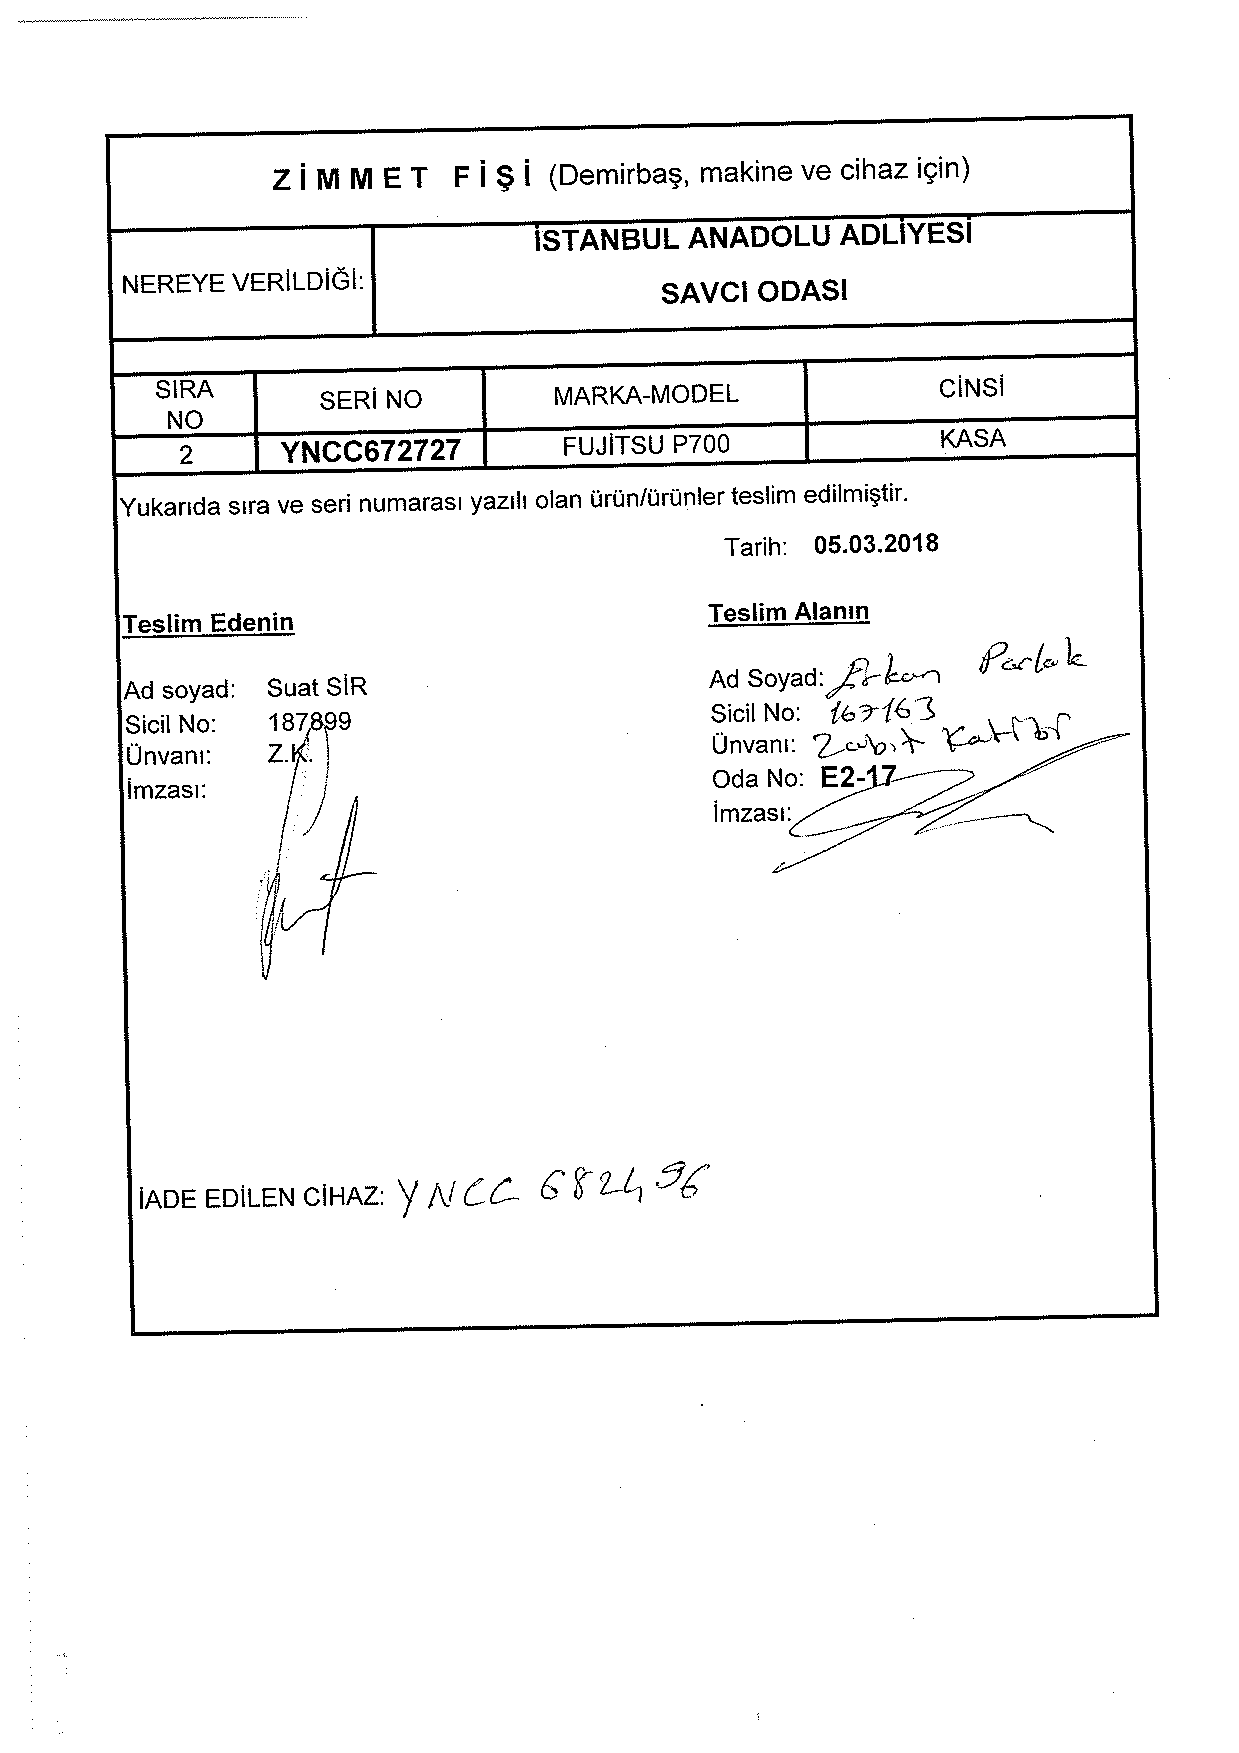 ZİMMET FİŞİ (Demirbaş, makine ve cihaz için)
NEREYE VERİLDİĞİ:
İSTANBUL ANADOLU ADLİYESİ
SAVCI ODASI
SIRA NO
SERİ NO
MARKA-MODEL
CİNSİ
2
YNCC672727
FUJİTSU P700
KASA
Yukarıda sıra ve seri numarası yazılı olan ürün/ürünler teslim edilmiştir.
Tarih: 05.03.2018
Teslim Edenin
Ad soyad: Suat SİR
Sicil No: 187899
Ünvanı: Z.K.
İmzası:
Teslim Alanın
Ad Soyad: Erkan Parlak
Sicil No: 167163
Ünvanı: Zabıt Katibi
Oda No: E2-17
İmzası:
İADE EDİLEN CİHAZ: YNCC 682496